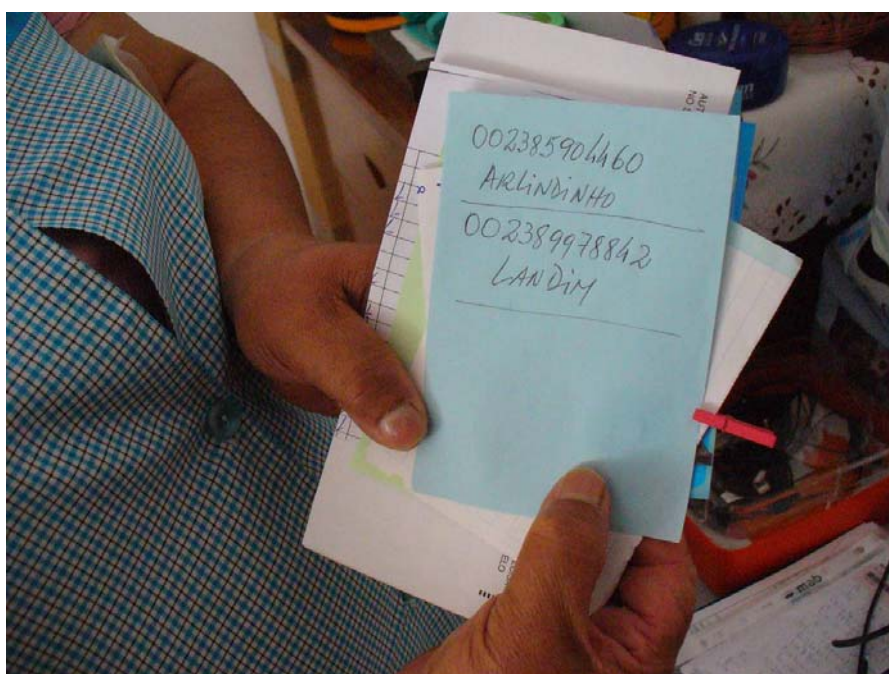 002385904460
ARLINDINHO
002389978842
LANDIM
AUT
NO
mab